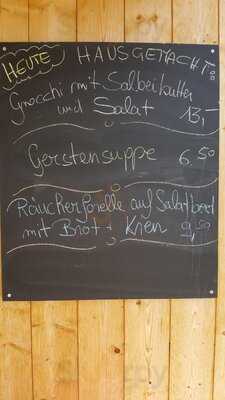 HEUTE HAUSGEMACHT:
Gnocchi mit Salbeibutter
und Salat 13,-
Gerstensuppe 6.50
Räucherforelle auf Salatbeet
mit Brot + Kren 9,50